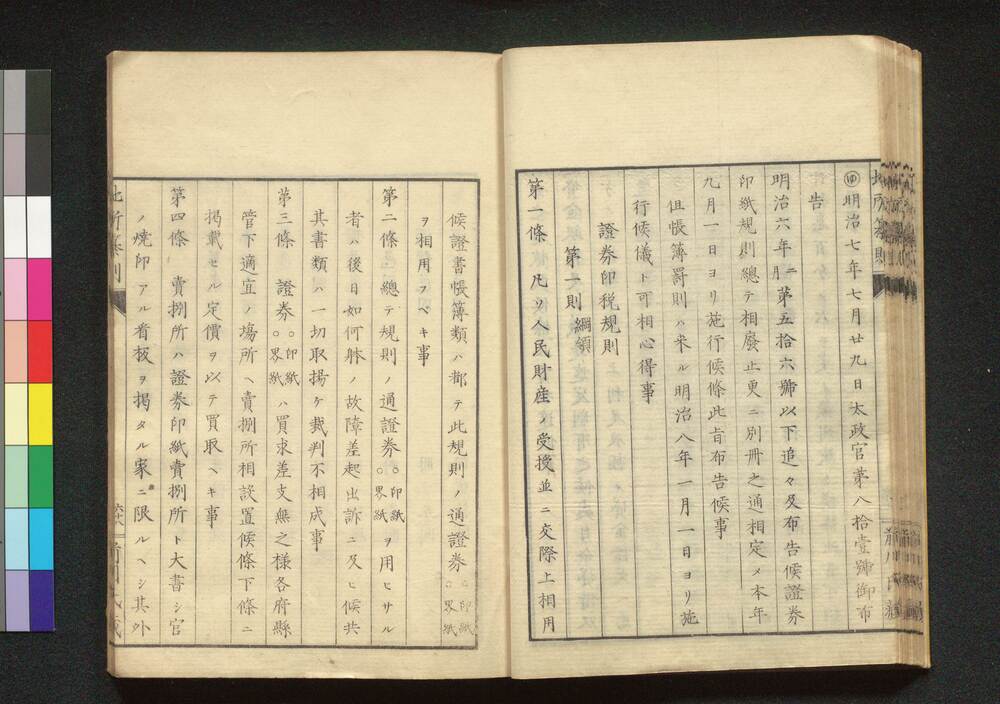 ㊞明治七年七月廿九日太政官第八拾壹號御布
告
明治六年二月第五拾六號以下追々及布告候證券
印紙規則總テ相廢止更ニ別冊之通相定メ本年
九月一日ヨリ施行候條此旨布告候事
但帳簿罰則ハ來ル明治八年一月一日ヨリ施
行候儀ト可相心得事
證券印税規則
第一則 綱領
第一條 凡ソ人民財産ノ受授並ニ交際上相用
候證書帳簿類ハ都テ此規則ノ通證券○印紙○界紙
ヲ相用フベキ事
第二條 總テ規則ノ通證券○印紙○界紙ヲ用ヒサル
者ハ後日如何躰ノ故障差起出訴ニ及ヒ候共
其書類ハ一切取揚ケ裁判不相成事
第三條 證券○印紙○界紙ハ買求差支無之様各府縣
管下適宜ノ場所ヘ賣捌所相設置候條下條ニ
掲載セル定價ヲ以テ買取ヘキ事
第四條 賣捌所ハ證券印紙賣捌所ト大書シ官
ノ燒印アル看板ヲ掲タル家ニ限ルヘシ其外
地所纂則